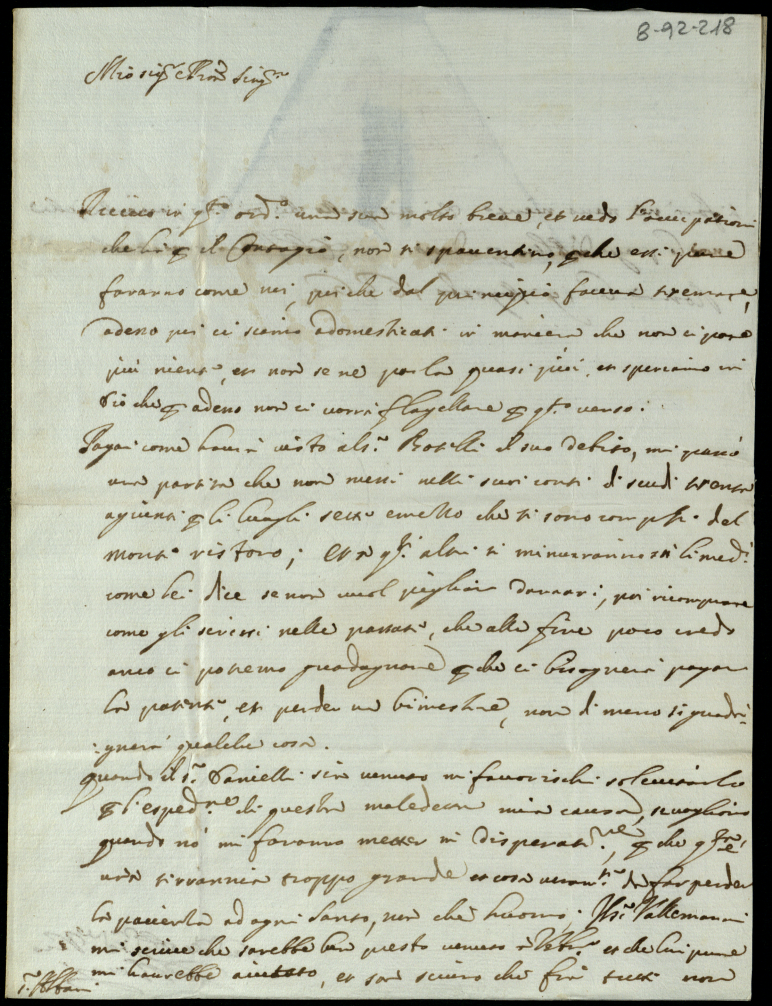 8-92-218
Mio sig.r e Pron Sing.re
in q.to ord.o una sua molto breve, et vedo
che ha il Contagio, non si spaventino, che essi pure
faranno come noi, poiche dal principio faceva tremare,
adesso poi ci siamo adomesticati in maniera che non ci pare
più niente, et non se ne parla quasi più, et speriamo in
Dio che adesso non ci vorrà flagellare q.to verso.
Pagai come haverà visto al s.r Botelli il suo debito, mi
una partita che non messi nelli suoi conti di scudi trenta
li luoghi sette e mezzo che si sono del
monte ristoro; et q.ti altri si
come lei dice se non vuol pigliar danari, poi ricomprare
come gli scrissi nelle passate, che alla fine poco credo
anco ci potremo guadagnare che ci bisognerà pagar
la patente, et perder un bimestre, non di meno si
qualche cosa.
quando il s.r Danielli sia venuto mi favorischi
l'esped.ne di questa maledetta mia causa,
quando nò mi faranno metter in disperat.ne, che q.ta è
una tirannia troppo grande et cosa veram.te da far perder
la pacienza ad ogni santo, non che huomo. Il s.r Vallemanni
mi scrive che sarebbe ben presto venuto et che lui pure
mi haurebbe aiutato, et son sicuro che fin tutti non
s.r Albani